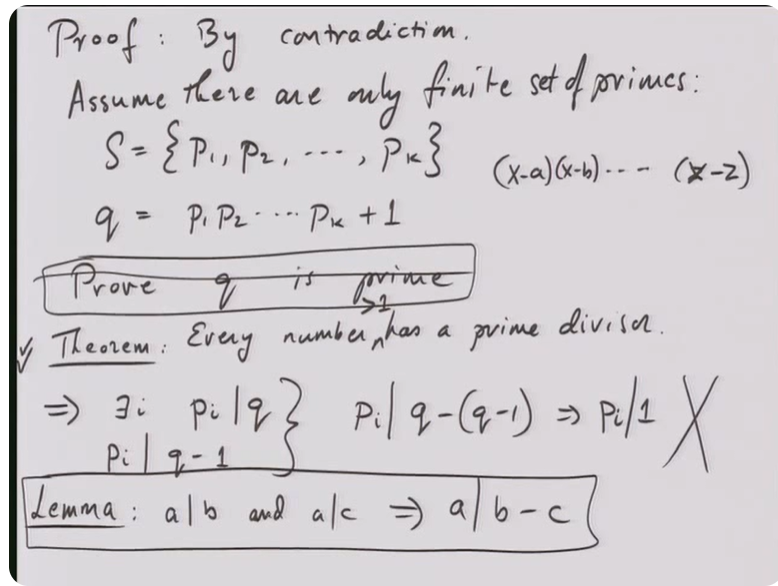 Proof : By contradiction.
Assume there are only finite set of primes:
S = { P1, P2, ..., Pk }
(x-a)(x-b)---- (x-z)
q = P1 P2 ---- Pk + 1
Prove q is prime
Theorem : Every number >1 has a prime divisor.
⇒ ∃i Pi | q } Pi | q-(q-1) ⇒ Pi | 1 X
Pi | q-1
Lemma : a | b and a | c ⇒ a | b-c